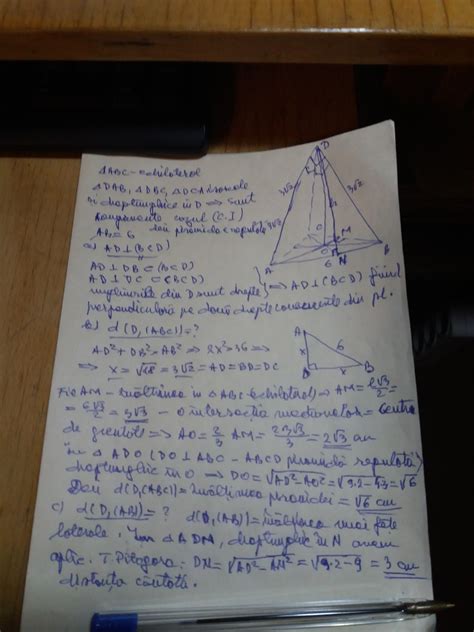 △ABC - echilateral
△DAB, △DBC, △DCA
și dreptunghice în D => sunt
congruente cazul (C.I)
AB = 6 sau piramida e regulată
a) AD⊥(BCD)
AD⊥DB⊂(BCD)
AD⊥DC⊂(BCD) } => AD⊥(BCD) fiind
unghiurile din D sunt drepte
perpendiculară pe două drepte concurente din pl.
b) d(D,(ABC)) = ?
AD²+DB²=AB² => 2x²=36 =>
=> x = √18 = 3√2 = AD = BD = DC
Fie AM - înălțimea în △ABC (echilateral) => AM = l√3/2 =
= 6√3/2 = 3√3 - O intersecția medianelor = centru
de greutate => AO = 2/3 AM = 2·3√3/3 = 2√3 cm
în △ADO (DO⊥ABC - ABCD piramidă regulată)
dreptunghic în O → DO = √AD²-AO² = √9·2-4·3 = √6
Deci d(D,(ABC)) = înălțimea piramidei = √6 cm
c) d(D,(AB)) = ? d(D,(AB)) = înălțimea unei fețe
laterale. În △ADN, dreptunghic în N avem
aplic. T. Pitagora: DN = √AD²-AN² = √9·2-9 = 3 cm
distanța căutată.
D
3√2
3√2
h
C
O
M
A
6
N
B
A
x
6
D
x
B